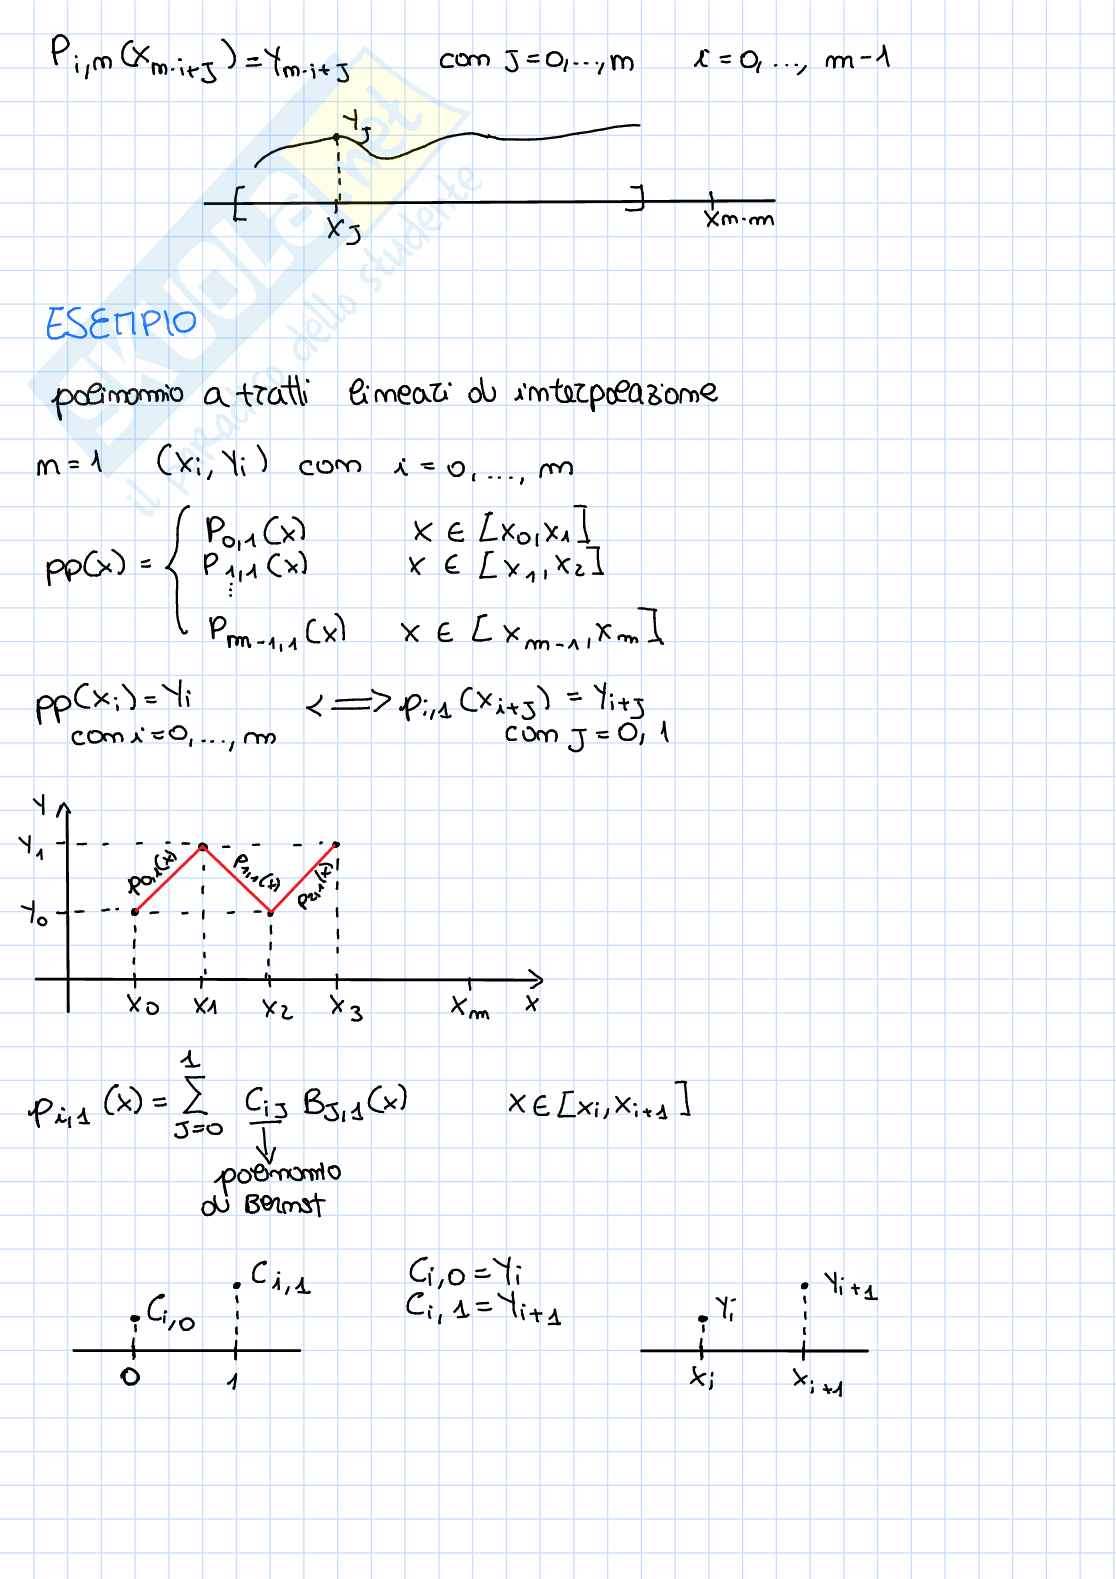 P_{i,m}(x_{m·i+J}) = Y_{m·i+J} com J=0,…,m i=0,…, m-1
Y_J
[ ]
x_J x_{m·m}
ESEMPIO
polinomio a tratti lineari di interpolazione
m=1 (x_i, Y_i) com i=0,…, m
P_{0,1}(x) x ∈ [x_0, x_1]
pp(x) = { P_{1,1}(x) x ∈ [x_1, x_2]
⋮
P_{m-1,1}(x) x ∈ [x_{m-1}, x_m]
pp(x_i) = Y_i <=> p_{i,1}(x_{i+J}) = Y_{i+J}
com i=0,…, m com J=0, 1
Y
Y_1
p_{0,1}(x) p_{1,1}(x) p_{2,1}(x)
Y_0
x_0 x_1 x_2 x_3 x_m x
1
p_{i,1}(x) = ∑ C_{iJ} B_{J,1}(x) x ∈ [x_i, x_{i+1}]
J=0
polinomio
di Bernst
C_{i,0} C_{i,1} C_{i,0} = Y_i Y_i Y_{i+1}
C_{i,1} = Y_{i+1}
0 1 x_i x_{i+1}
SKUOLA.net
il paradiso dello studente